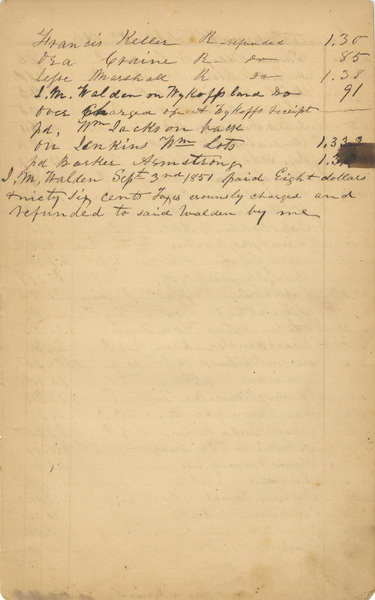 Francis Keller R - refunded 1.30
Asa Craine R - Do 85
Jesse Marshall R Do 1.38
J. M. Walden on Wykoffs land Do 91
over Charged on A Wykoffs receipt
pd, Wm Jackson back
on Jenkins Wm Lots 1.33
pd Barker Armstrong 1.3
J. M. Walden Sept 3rd 1851 paid Eight dollars
& niety Six cents Taxes erounsly charged and
refunded to said Walden by me